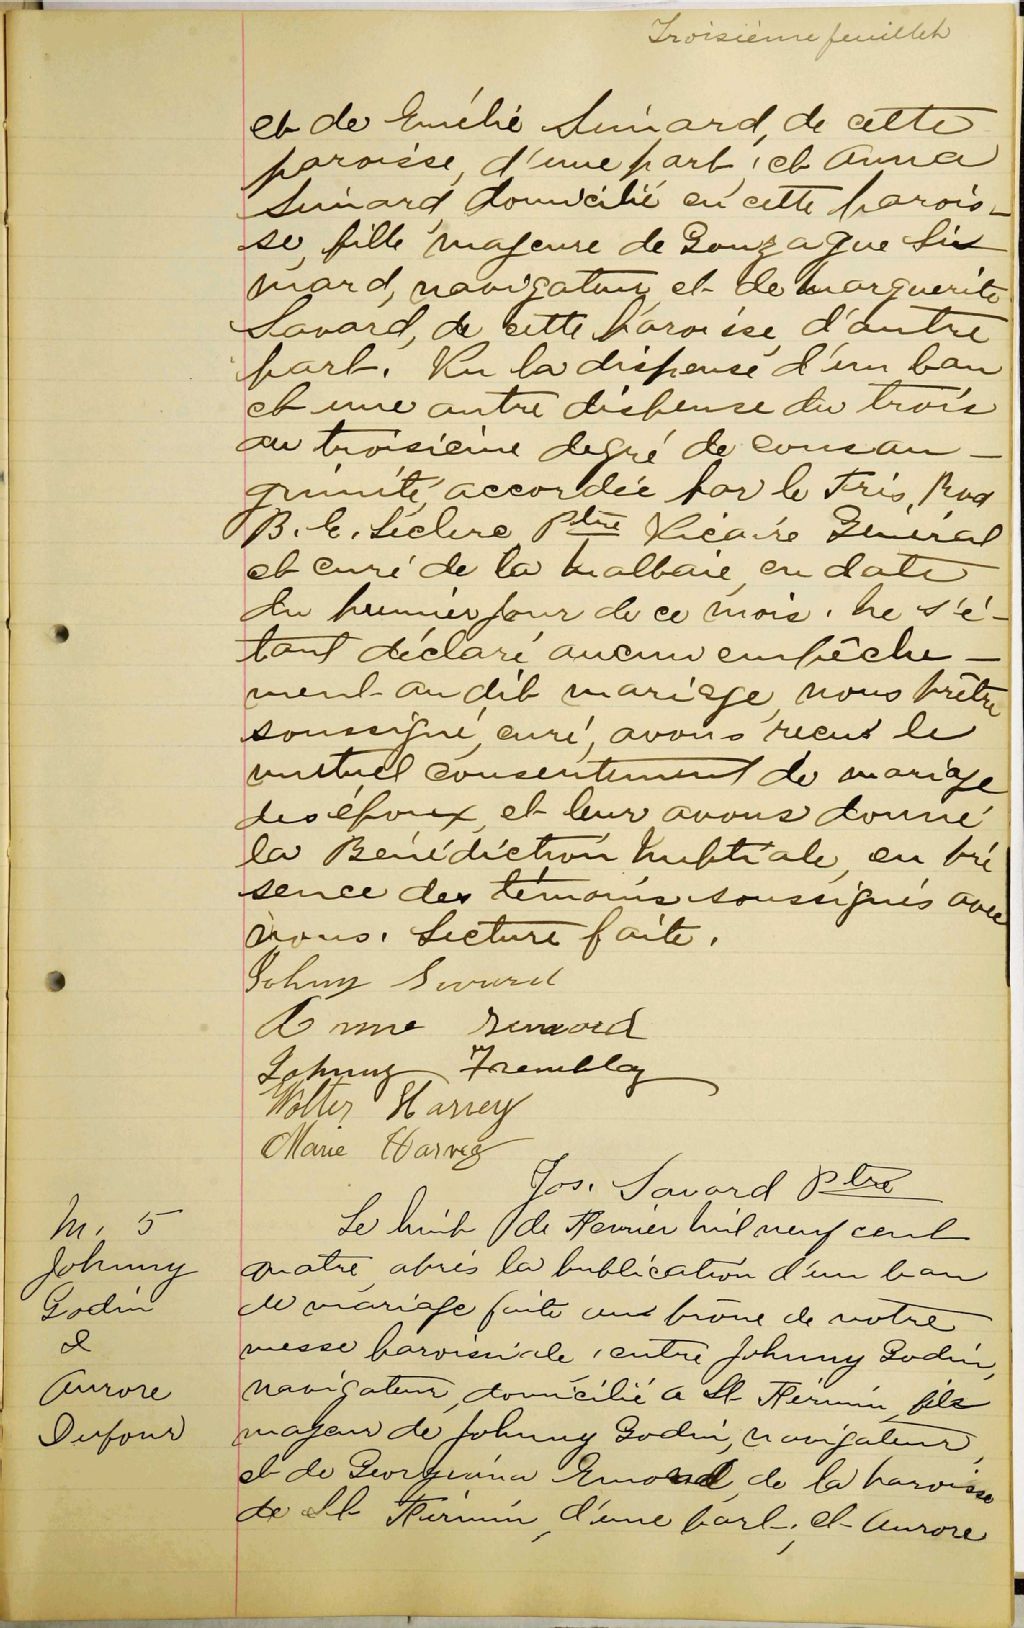 Troisième feuillet
et de Emélie Simard, de cette
paroisse, d'une part, et Anna
Simard, domicilié en cette parois-
se, fille majeure de Gonzague Si
mard, navigateur, et de Marguerite
Savard, de cette paroisse, d'autre
part. Vu la dispense d'un ban
et une autre dispense du trois
au troisième degré de consan-
guinité, accordée par le Très Rvd
B. E. Leclerc Ptre Vicaire Général
et curé de la Malbaie en date
du premier jour de ce mois. Ne s'é-
tant déclaré aucun empêche-
ment au dit mariage, nous prêtre
soussigné, curé, avons reçus le
mutuel consentement de mariage
des époux, et leur avons donné
la Bénédiction Nuptiale, en pré
sence des témoins soussignés avec
nous. Lecture faite.
Johny
Anna Simard
Johnny Tremblay
Walter Harvey
Marie Harvey
Jos. Savard Ptre
M. 5
Johnny
Godin
&
Aurore
Dufour
Le huit de Février mil neuf cent
quatre, après la publication d'un ban
de mariage faite au prône de notre
messe paroissiale, entre Johnny Godin,
navigateur, domicilié à St Firmin, fils
majeur de Johnny Godin, navigateur,
et de Georgiana Emond, de la paroisse
de St Firmin, d'une part; et Aurore